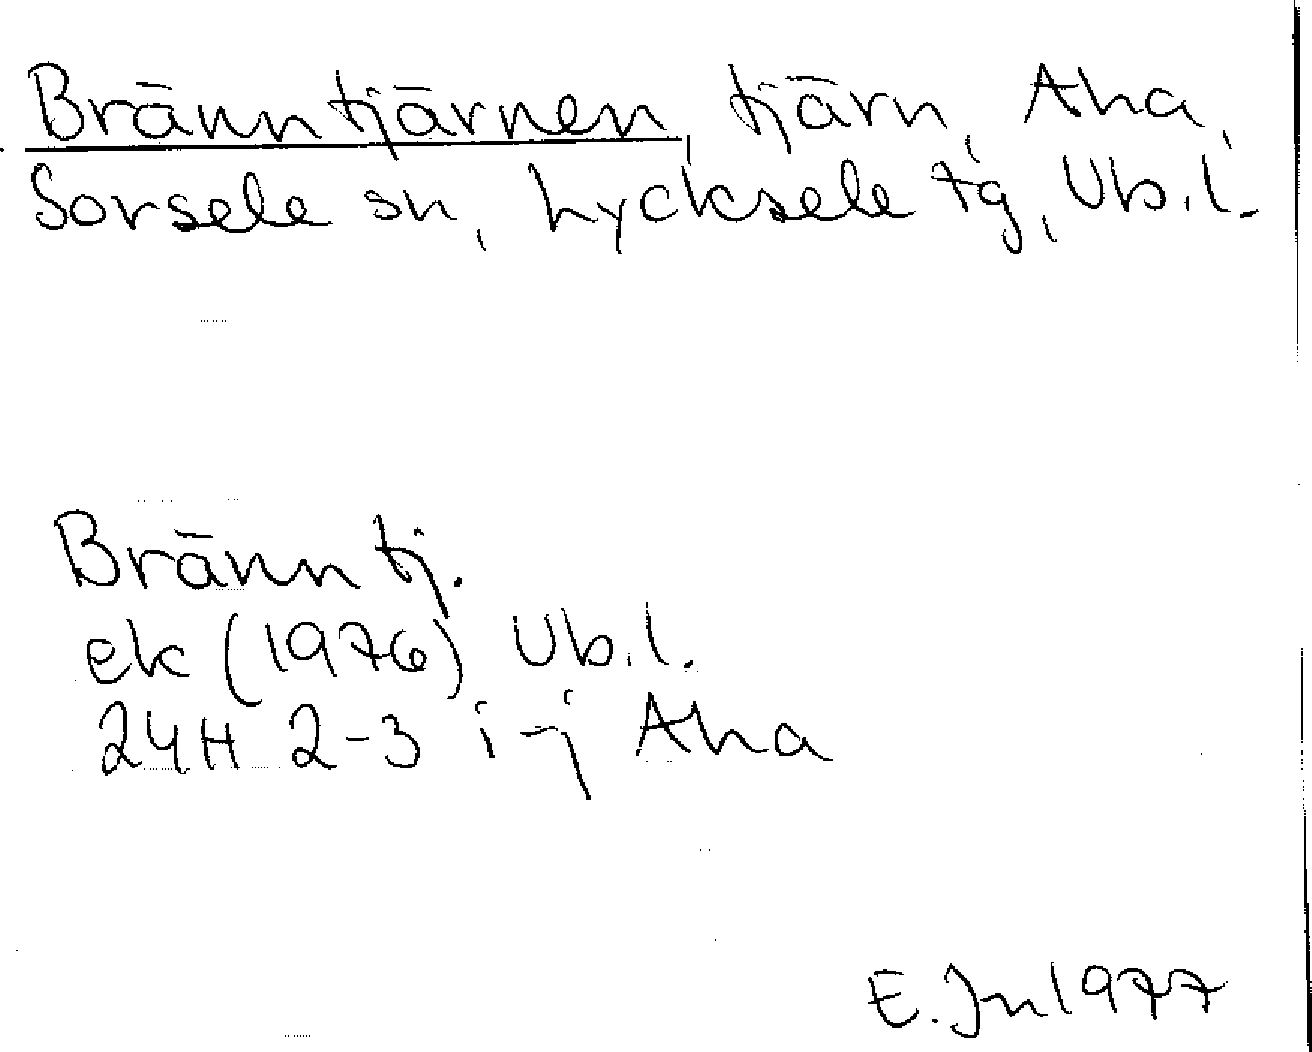 Bränntjärnen, tjärn, Aha,
Sorsele sn, Lycksele tg, Vb.l.
Bränntj.
ek (1976) Vb.l.
24H 2-3 i-j Aha
E. Jn 1977